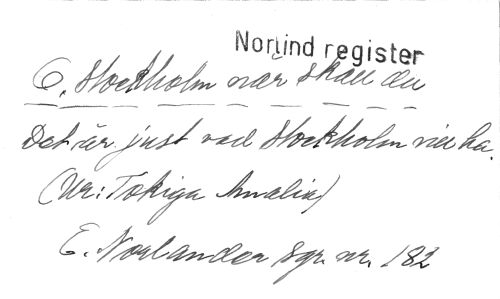 Norlind register
O, Stockholm när skall du
Det är just vad Stockholm vill ha.
(Ur: Tokiga Amalia)
E. Norlander Sgr. nr. 182